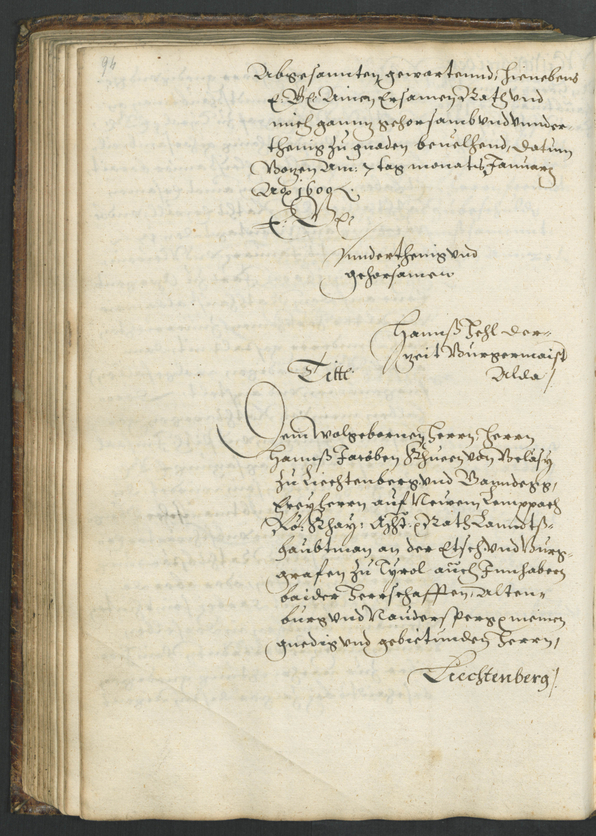 94
Abgesannten gewartennd, hienebens
E: Gn: Ainen Ersamen Rath und
mich gannz gehorsamb und under-
thenig zu gnaden bevelhend, Datum
Bozen Am: 7 tag monats January
Ao 1609.
E: Gn:
underthenig und
gehorsamen
Hannß Jehl der-
zeit Burgermaist
Alda /
Titte:
Dem Wolgebornen Herrn Herrn
Hannß Jacoben Khuen von Belasy
zu Liechtenberg und Ganndegg,
Freyherrn auf Newem Lemppach
Rö: Khay: Mht: Rath Lanndts-
haubtman an der Etsch und Burg-
grafen zu Tyrol auch Innhabern
baider Herrschafften, Alten-
burg und Naudersperg meinem
gnedig und gebietunden Herrn,
Liechtenberg /